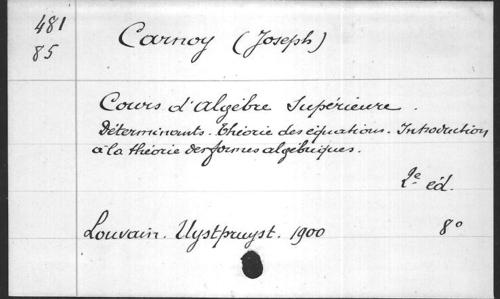 481
85
Carnoy (Joseph)
Cours d'algèbre Supérieure.
Déterminants. Théorie des équations. Introduction
à la théorie des formes algébriques.
2e éd.
Louvain. Uystpruyst. 1900 8°